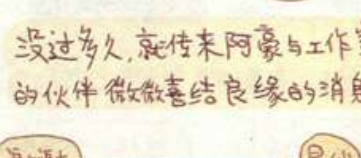 没过多久,就传来阿豪与工作
的伙伴微微喜结良缘的消息